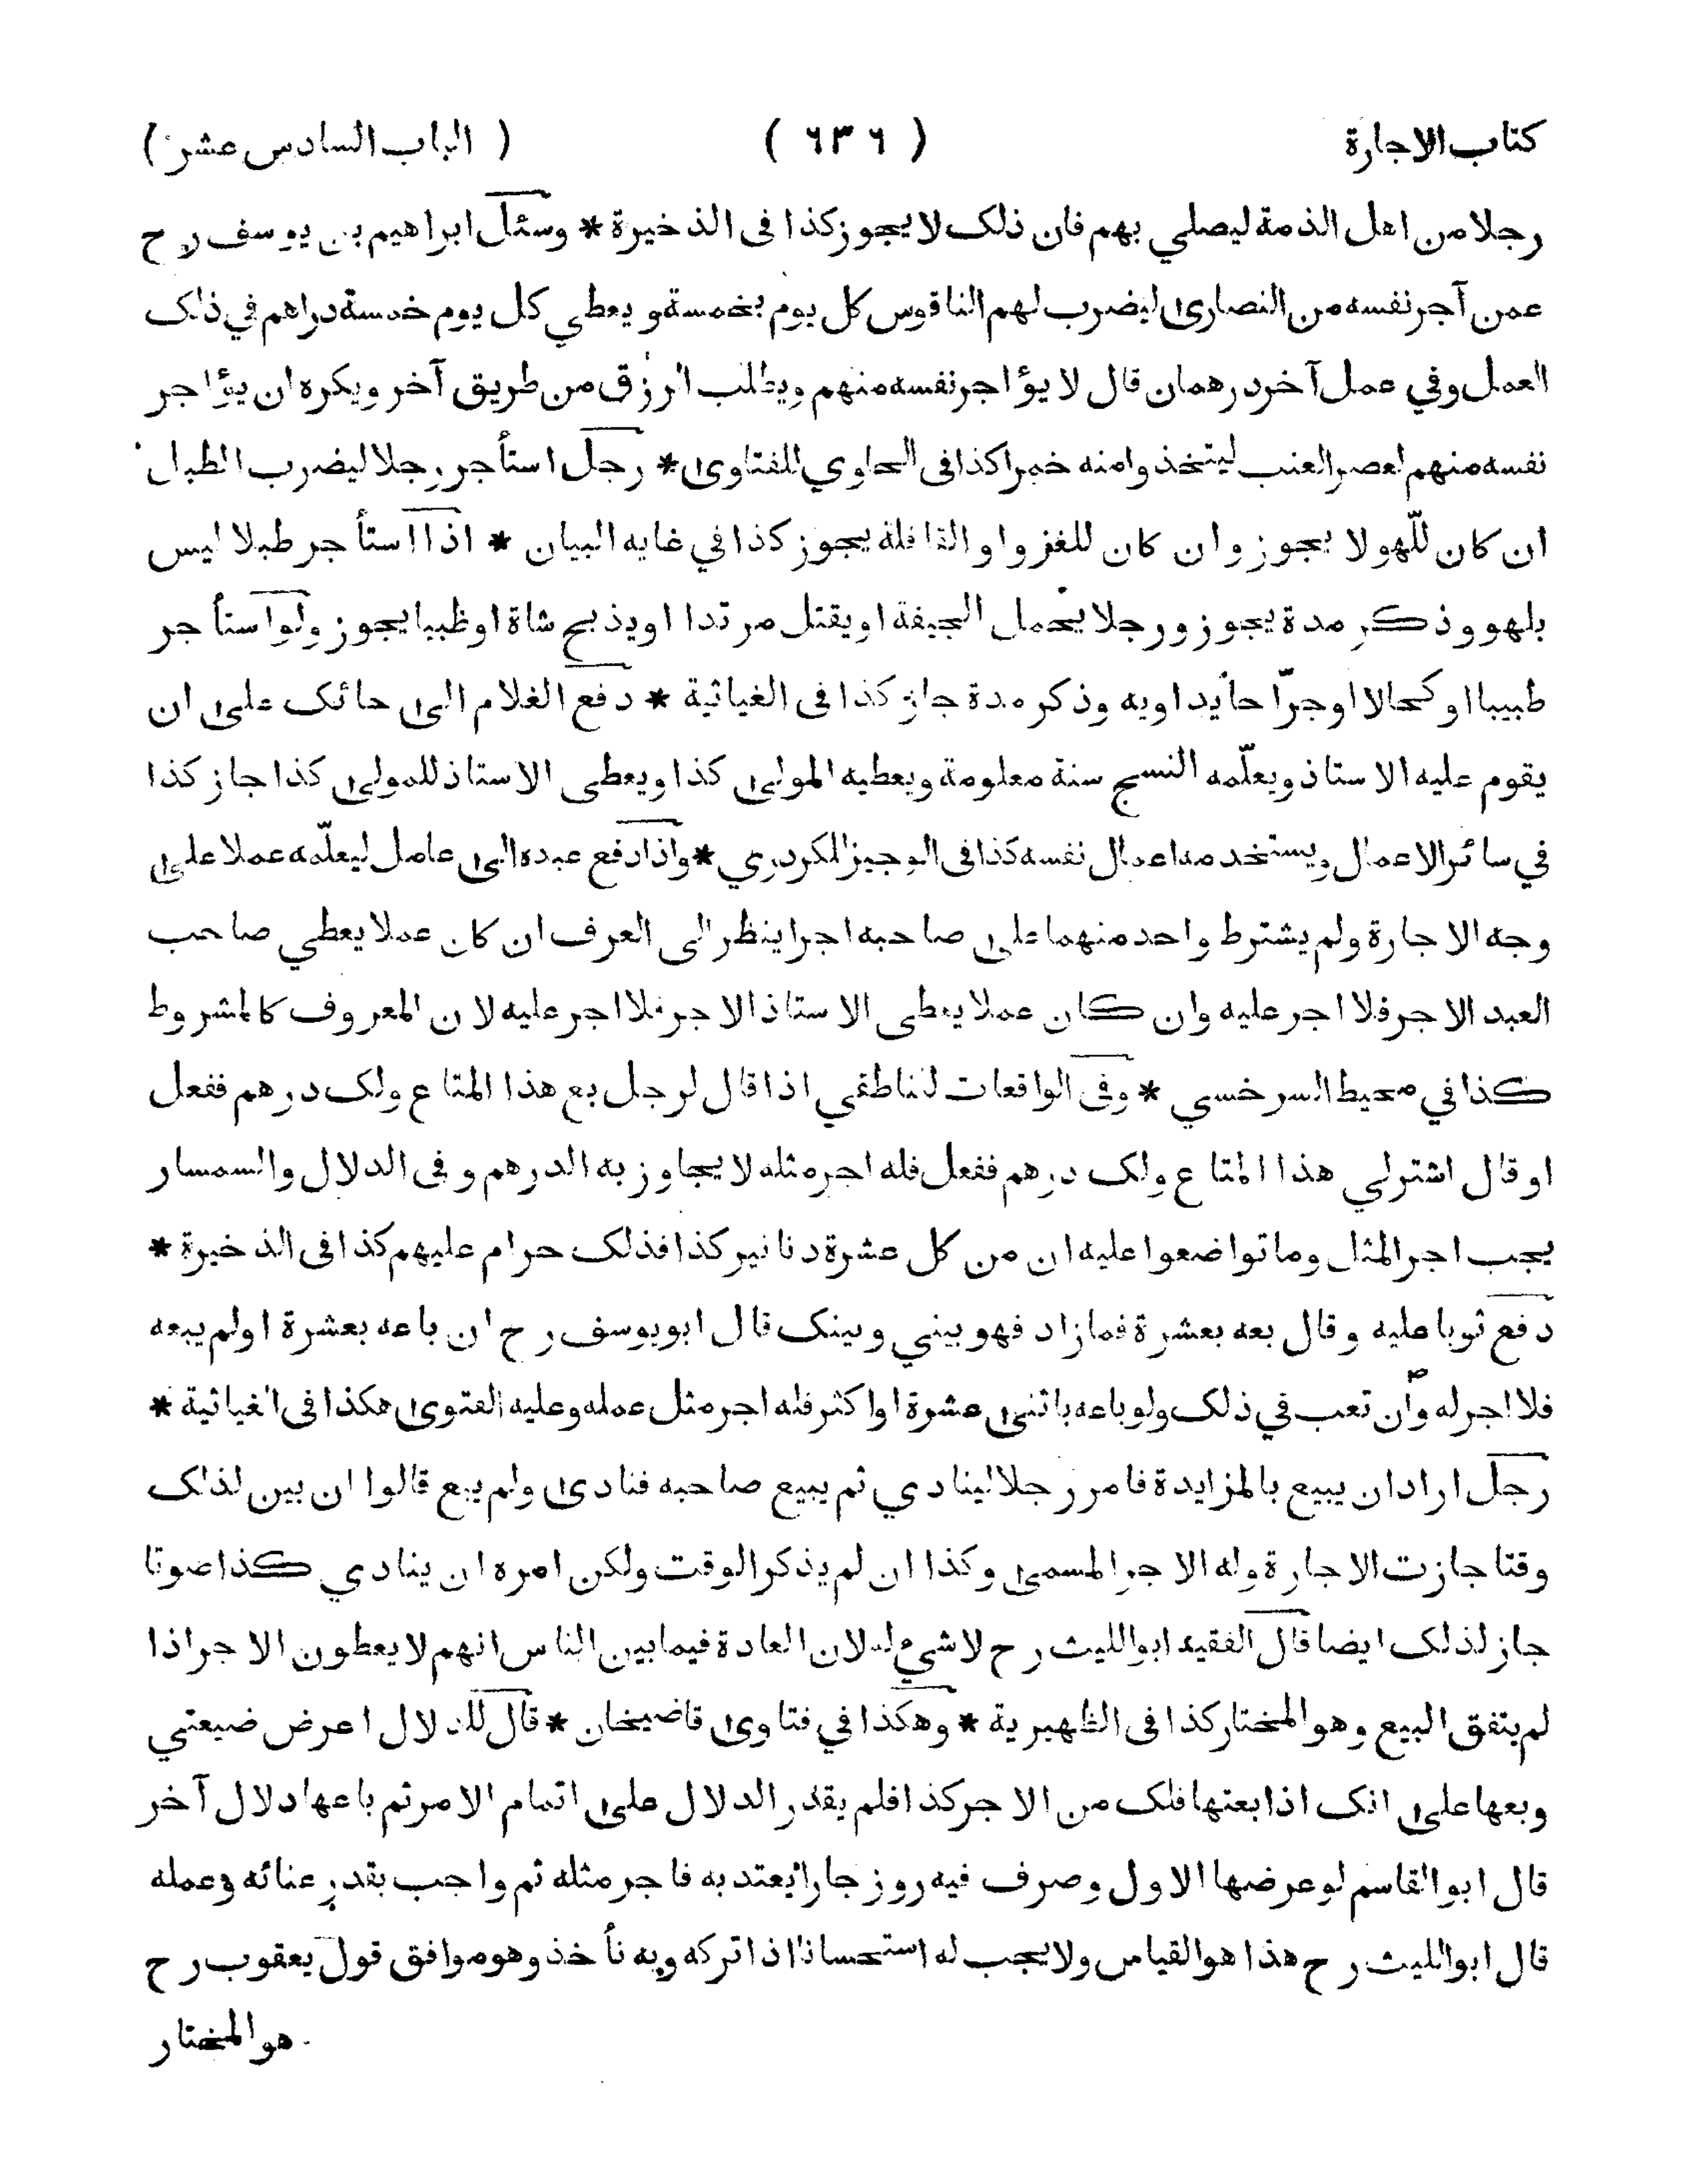 كتاب الاجارة ( ٦٣٦ ) ( الباب السادس عشر )
رجلا من اهل الذمة ليصلي بهم فان ذلك لا يجوز كذا فى الذخيرة * وسئل ابراهيم بن يوسف رح
عمن آجر نفسه من النصارى ليضرب لهم الناقوس كل يوم بخمسة ويعطي كل يوم خمسة دراهم في ذلك
العمل وفي عمل آخر درهمان قال لا يؤاجر نفسه منهم ويطلب الرزق من طريق آخر ويكره ان يؤاجر
نفسه منهم لعصر العنب ليتخذوا منه خمرا كذا فى الحاوي للفتاوى * رجل استأجر رجلا ليضرب الطبل
ان كان للّهو لا يجوز وان كان للغزو او القافلة يجوز كذا في غايه البيان * اذا استأجر طبلا ليس
بلهو وذكر مدة يجوز ورجلا يحمل الجيفة او يقتل مرتدا او يذبح شاة او ظبيا يجوز ولو استأجر
طبيبا او كحالا او جرّاحا يداويه وذكر مدة جاز كذا فى الغياثية * دفع الغلام الى حائك على ان
يقوم عليه الاستاذ ويعلّمه النسج سنة معلومة ويعطيه المولى كذا ويعطى الاستاذ للمولى كذا جاز كذا
في سائر الاعمال ويستخدمه اعمال نفسه كذا فى الوجيز للكردري * واذا دفع عبده الى عامل ليعلّمه عملا على
وجه الاجارة ولم يشترط واحد منهما على صاحبه اجرا ينظر الى العرف ان كان عملا يعطي صاحب
العبد الاجر فلا اجر عليه وان كان عملا يعطى الاستاذ الاجر فلا اجر عليه لان المعروف كالمشروط
كذا في محيط السرخسي * وفى الواقعات للناطقي اذا قال لرجل بع هذا المتاع ولك درهم ففعل
او قال اشتر لي هذا المتاع ولك درهم ففعل فله اجر مثله لا يجاوز به الدرهم وفى الدلال والسمسار
يجب اجر المثل وما تواضعوا عليه ان من كل عشرة دنانير كذا فذلك حرام عليهم كذا فى الذخيرة *
دفع ثوبا عليه وقال بعه بعشرة فمازاد فهو بيني وبينك قال ابو يوسف رح ان باعه بعشرة او لم يبعه
فلا اجر له وان تعب في ذلك ولو باعه باثنى عشرة او اكثر فله اجر مثل عمله وعليه الفتوى هكذا فى الغياثية *
رجل اراد ان يبيع بالمزايدة فامر رجلا لينادي ثم يبيع صاحبه فنادى ولم يبع قالوا ان بين لذلك
وقتا جازت الاجارة وله الاجر المسمى وكذا ان لم يذكر الوقت ولكن امره ان ينادي كذا صوتا
جاز لذلك ايضا قال الفقيه ابو الليث رح لا شيء له لان العادة فيما بين الناس انهم لا يعطون الاجر اذا
لم يتفق البيع وهو المختار كذا فى الظهيرية * وهكذا في فتاوى قاضيخان * قال للدلال اعرض ضيعتي
وبعها على انك اذا بعتها فلك من الاجر كذا فلم يقدر الدلال على اتمام الامر ثم باعها دلال آخر
قال ابو القاسم لو عرضها الاول وصرف فيه روزجارا يعتد به فاجر مثله ثم واجب بقدر عنائه وعمله
قال ابو الليث رح هذا هو القياس ولا يجب له استحسانا اذا تركه وبه نأخذ وهو موافق قول يعقوب رح
هو المختار